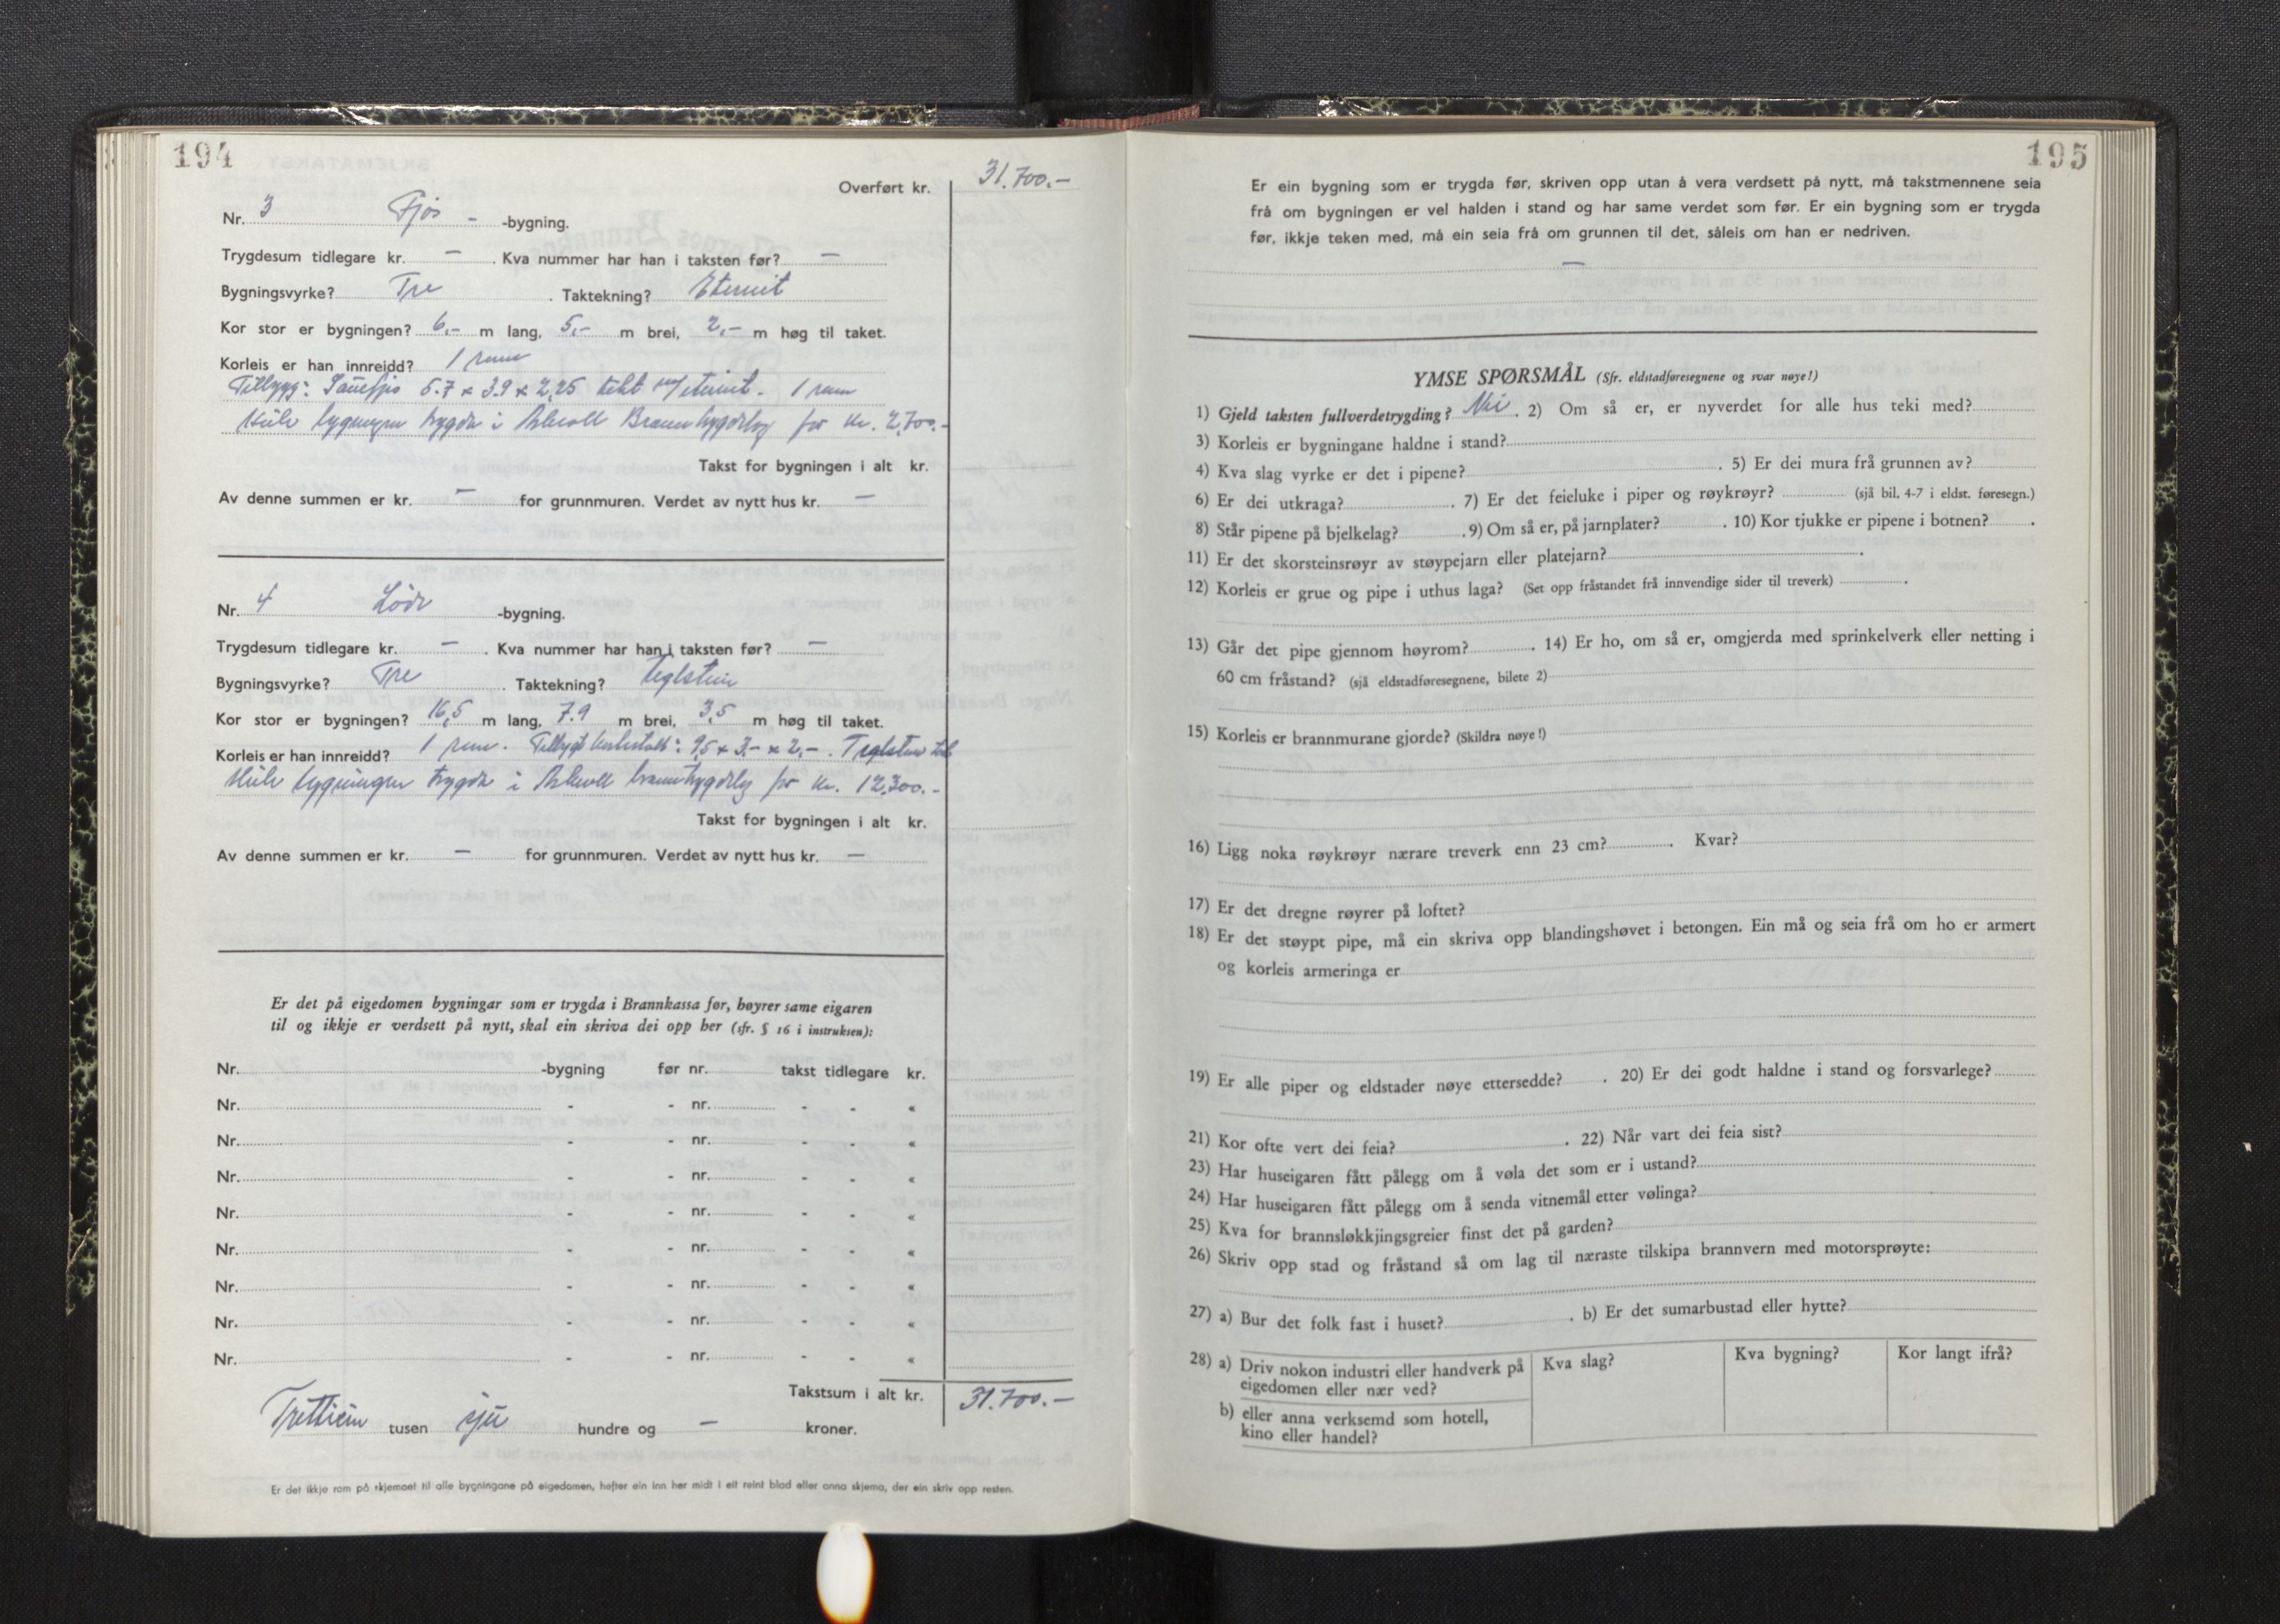 194
Overført kr. 31.700.-
Nr. 3 Fjøs - -bygning.
Trygdesum tidlegare kr. — . Kva nummer har han i taksten før? —
Bygningsvyrke? Tre . Taktekning? Eternit
Kor stor er bygningen? 6,- m lang, 5,- m brei, 2,- m høg til taket.
Korleis er han innreidd? 1 rum
Tilbygg: Sauefjøs 5.7 x 3.9 x 2,25 tekt m/eternit. 1 rum
Heile bygningen trygda i Askvoll Branntrygdelag for kr. 2,700.-
Takst for bygningen i alt kr.
Av denne summen er kr. — for grunnmuren. Verdet av nytt hus kr. —
Nr. 4 Løde -bygning.
Trygdesum tidlegare kr. — . Kva nummer har han i taksten før? —
Bygningsvyrke? Tre . Taktekning? Teglstein
Kor stor er bygningen? 16,5 m lang, 7.9 m brei, 3,5 m høg til taket.
Korleis er han innreidd? 1 rum. Tilbygt : 9,5 x 3,- x 2,- . Teglstein
Heile bygningen trygda i Askvoll branntrygdelag for kr. 12,300.-
Takst for bygningen i alt kr.
Av denne summen er kr. — for grunnmuren. Verdet av nytt hus kr. —
Er det på eigedomen bygningar som er trygda i Brannkassa før, høyrer same eigaren
til og ikkje er verdsett på nytt, skal ein skriva dei opp her (sfr. § 16 i instruksen):
Nr. -bygning før nr. takst tidlegare kr.
Nr. - - nr. - - «
Nr. - - nr. - - «
Nr. - - nr. - - «
Nr. - - nr. - - «
Nr. - - nr. - - «
Nr. - - nr. - - «
Nr. - - nr. - - «
Nr. - - nr. - - «
Takstsum i alt kr. 31.700.-
Trettiein tusen sju hundre og — kroner.
Er det ikkje rom på skjemaet til alle bygningane på eigedomen, hefter ein inn her midt i eit reint blad eller anna skjema, der ein skriv opp resten.
195
Er ein bygning som er trygda før, skriven opp utan å vera verdsett på nytt, må takstmennene seia
frå om bygningen er vel halden i stand og har same verdet som før. Er ein bygning som er trygda
før, ikkje teken med, må ein seia frå om grunnen til det, såleis om han er nedriven.
—
YMSE SPØRSMÅL (Sfr. eldstadføresegnene og svar nøye!)
1) Gjeld taksten fullverdetrygding? Nei . 2) Om så er, er nyverdet for alle hus teki med?
3) Korleis er bygningane haldne i stand?
4) Kva slag vyrke er det i pipene? . 5) Er dei mura frå grunnen av?
6) Er dei utkraga? . 7) Er det feieluke i piper og røykrøyr? (sjå bil. 4-7 i eldst. føresegn.)
8) Står pipene på bjelkelag? . 9) Om så er, på jarnplater? . 10) Kor tjukke er pipene i botnen? .
11) Er det skorsteinsrøyr av støypejarn eller platejarn? .
12) Korleis er grue og pipe i uthus laga? (Set opp fråstandet frå innvendige sider til treverk) .
13) Går det pipe gjennom høyrom? . 14) Er ho, om så er, omgjerda med sprinkelverk eller netting i
60 cm fråstand? (sjå eldstadføresegnene, bilete 2)
15) Korleis er brannmurane gjorde? (Skildra nøye!)
16) Ligg noka røykrøyr nærare treverk enn 23 cm? . Kvar?
17) Er det dregne røyrer på loftet?
18) Er det støypt pipe, må ein skriva opp blandingshøvet i betongen. Ein må og seia frå om ho er armert
og korleis armeringa er
19) Er alle piper og eldstader nøye ettersedde? . 20) Er dei godt haldne i stand og forsvarlege?
21) Kor ofte vert dei feia? . 22) Når vart dei feia sist?
23) Har huseigaren fått pålegg om å vøla det som er i ustand?
24) Har huseigaren fått pålegg om å senda vitnemål etter vølinga?
25) Kva for brannsløkkjingsgreier finst det på garden?
26) Skriv opp stad og fråstand så om lag til næraste tilskipa brannvern med motorsprøyte:
27) a) Bur det folk fast i huset? . b) Er det sumarbustad eller hytte?
28) a) Driv nokon industri eller handverk på Kva slag? Kva bygning? Kor langt ifrå?
eigedomen eller nær ved?
b) eller anna verksemd som hotell,
kino eller handel?